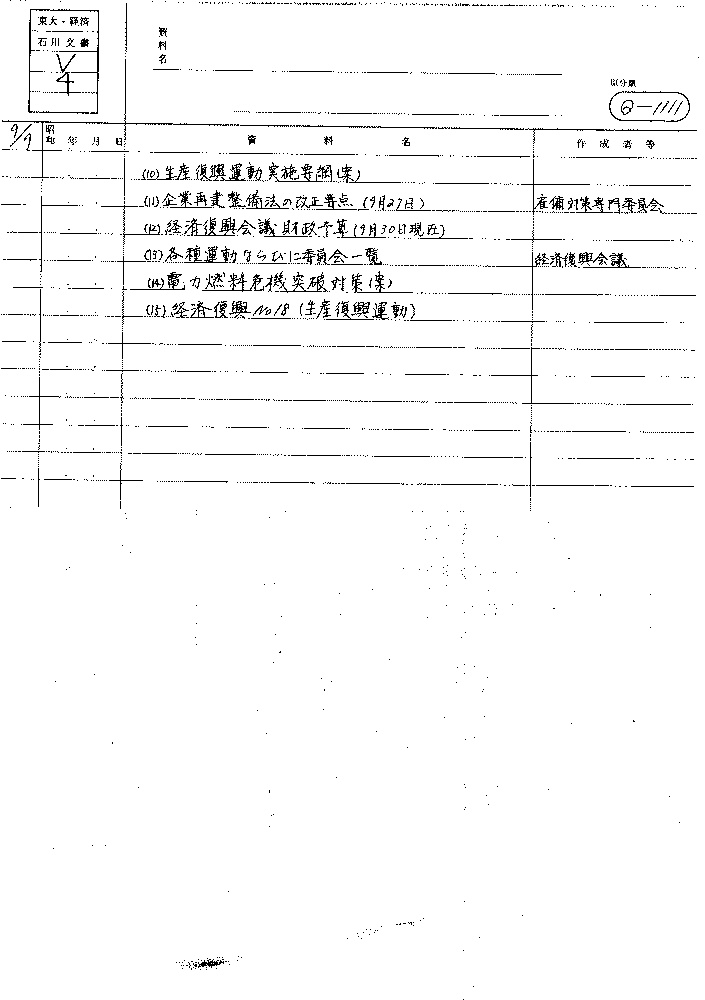 東大・経済
石川文書
V
4
資料名
旧分類
Q-1111
9/9
昭和 年 月 日 資料名 作成者等
(10) 生産復興運動実施要綱(案)
(11) 企業再建整備法の改正要点 (9月27日) 雇傭対策専門委員会
(12) 経済復興会議財政予算 (9月30日現在)
(13) 各種運動ならびに委員会一覧 経済復興会議
(14) 電力燃料危機突破対策(案)
(15) 経済復興 No18 (生産復興運動)